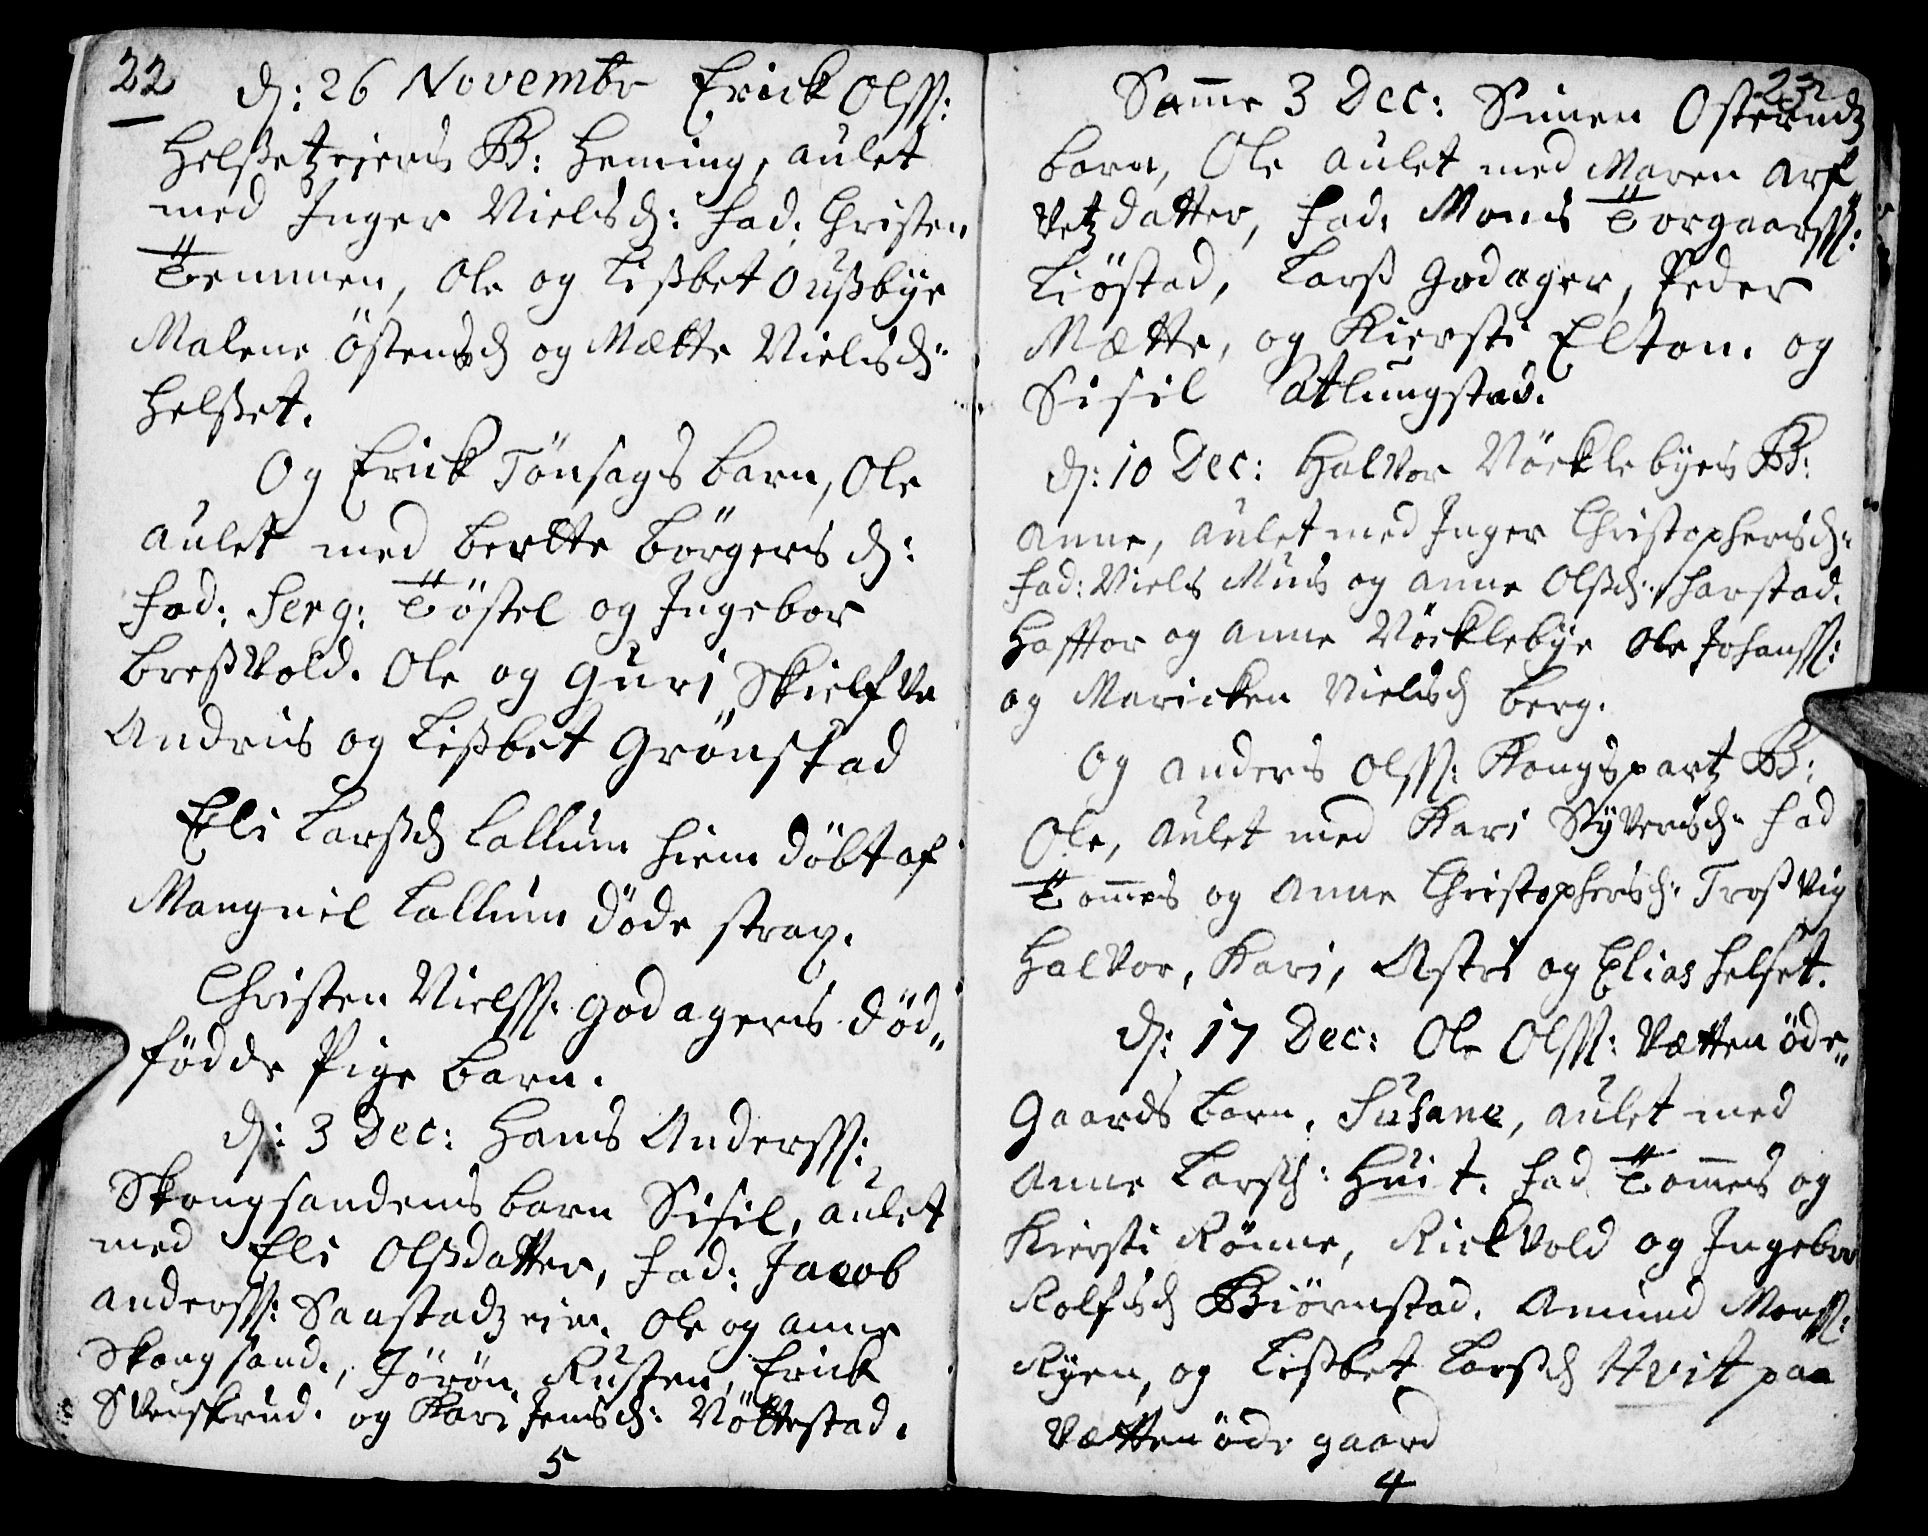 22
d: 26 Novembr Erick Olss:
Helßetzeiers B: Heming, aulet
med Inger Nielsd: fad: Christen
Temmen, Ole og Lißbet Oußbye
Malene Östensd og Mætte Nielsd:
Helßet.
Og Erick Tönsags barn, Ole
aulet med bertte Börgers d:
fad: Serg: Töstel og Ingebor
breßvold. Ole og Guri Skielfve
Andris og Lißbet Grönstad
Eli Larßd Lallum hiem döbt af
Mangnil Lallum döde strax.
Christen Nielss: Godagers död„
födde Pige barn.
d: 3 Dec: Hans Anderss:
Skougsandens barn Sisil, aulet
med Eli Olßdatter, fad: Jacob
anderss: Saastadzeie. Ole og anne
Skougsand., Jörön Rusten, Erick
Svenskrud. og Kari Jensd: Nöttestad.
5
23
Samme 3 Dec: Simen Osterudz
barn, Ole aulet med Maren Arf
vetzdatter, fad: Mons Torgaarss:
Liöstad, Larß Godager, Peder
Mætte, og Kiersti Elton. og
Sisil Atlungstad.
d: 10 Dec: Halvor Nöcklebyes B:
Anne, aulet med Inger Christophersd:
fad: Niels Muus og anne Olßd: harstad.
Haffvor og anne Nöcklebye Ole Johanss:
og Maricken Nielsd berg.
Og anders Olss: Kongspartz B:
Ole, aulet med Kari Syversd: fad
Tommes og Anne Christophersd: Troßvig
Halvor, Kari, Astri og Elias helset.
d: 17 Dec: Ole Olss: Vætten öde„
Gaards barn, Susane, aulet med
Anne Larsd: Huit. fad Tommes og
Kiersti Rönne, Rickvold og Ingebor
Rolfsd Biörnstad. Amund Monss:
Ryen, og Lißbet Larßd Hvit paa
Vætten öde gaard
4